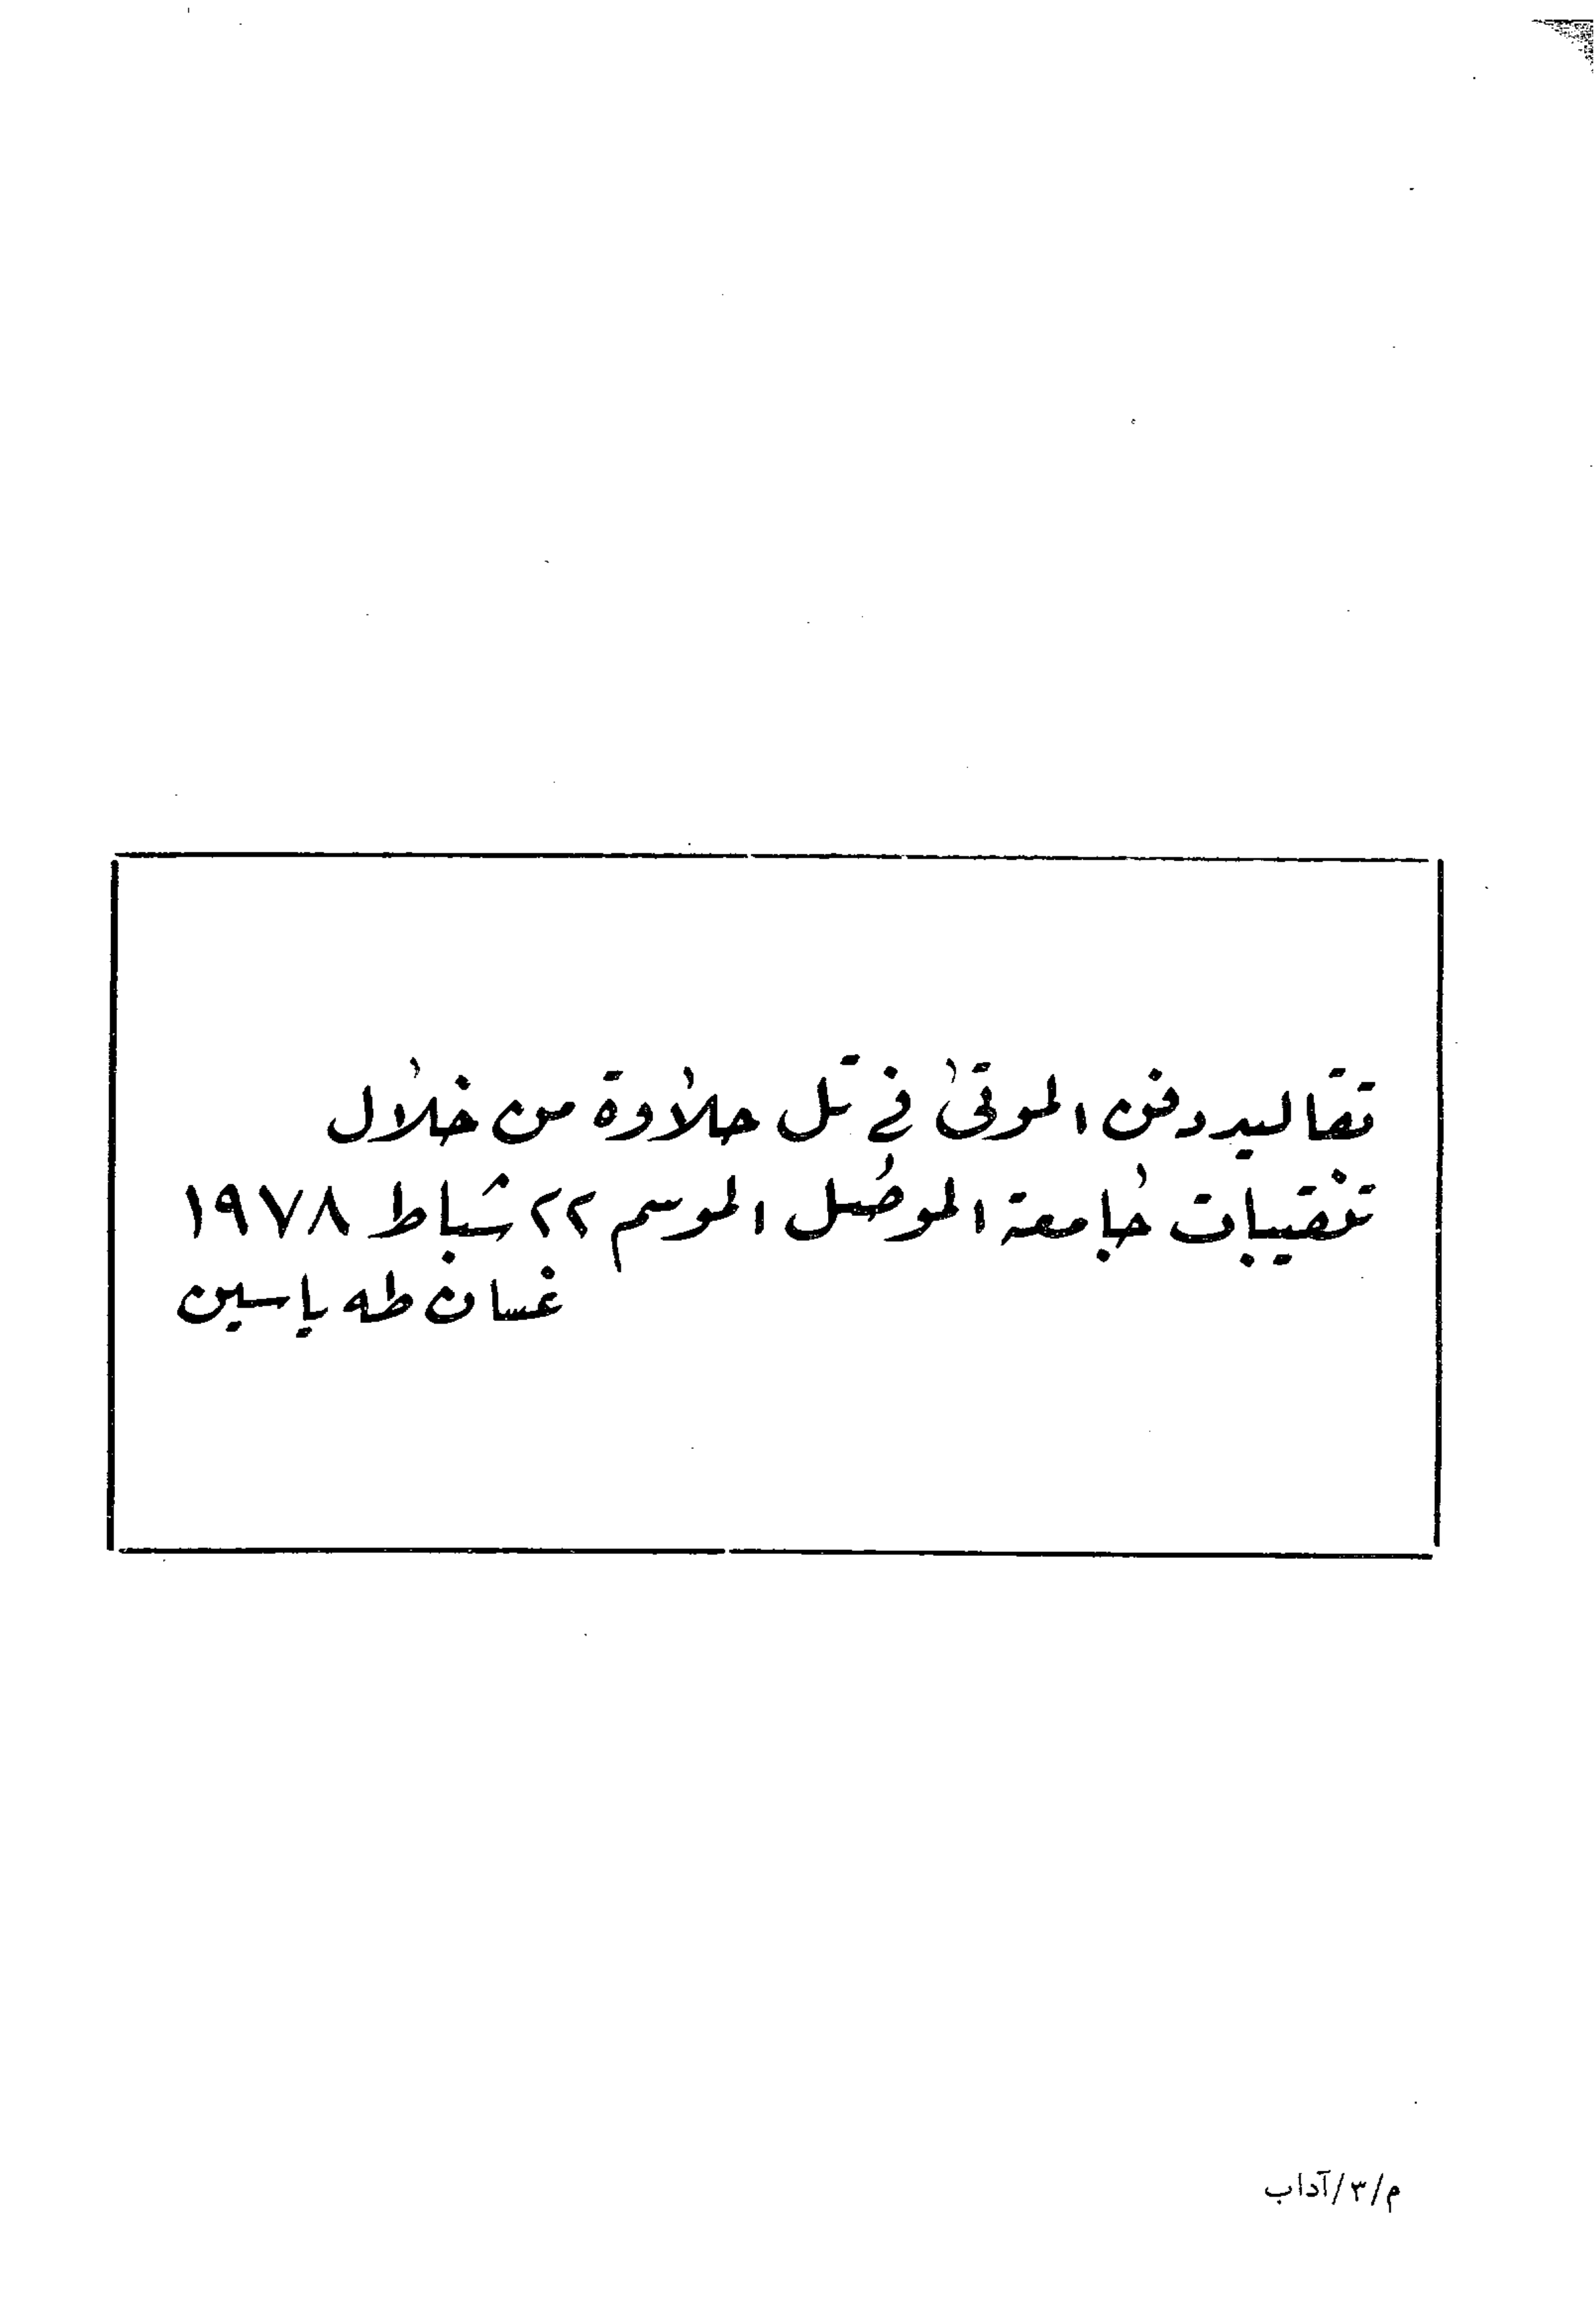 تقاليد دفن الموتىٰ في تل حلاوة من خلال
تنقيبات جامعة الموصل الموسم ٢٢ شباط ١٩٧٨
غسان طه ياسين
م/٣/آداب